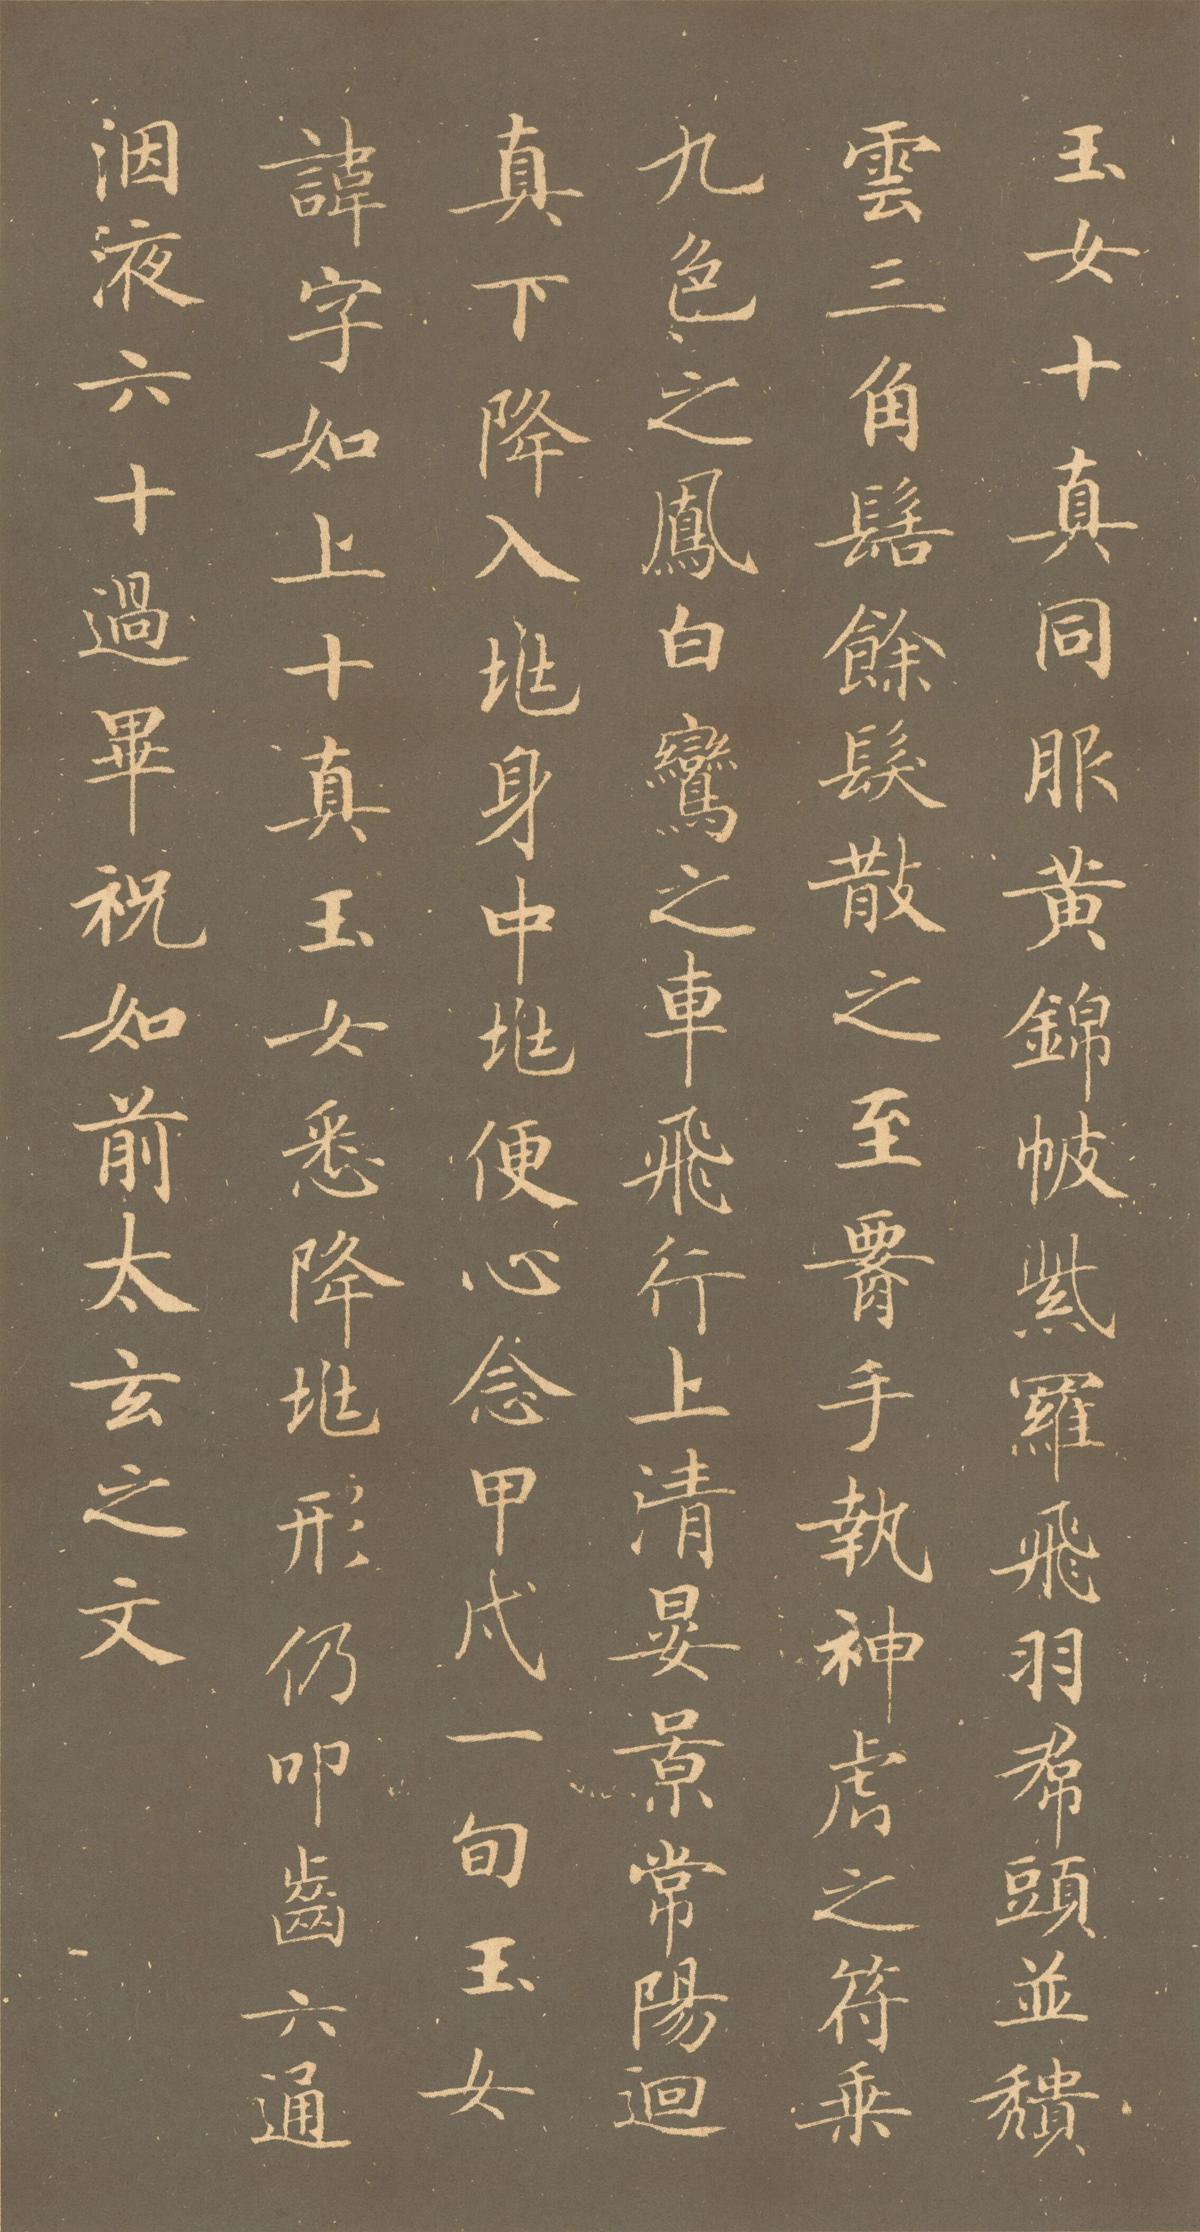 玉女十真同服黄錦帔紫羅飛羽帬頭並穨
雲三角髻餘髮散之至署手執神虎之符乗
九色之鳳白鸞之車飛行上清晏景常陽迴
真下降入地身中地便心念甲戌一旬玉女
諱字如上十真玉女悉降地形仍叩齒六通
洇液六十過畢祝如前太玄之文